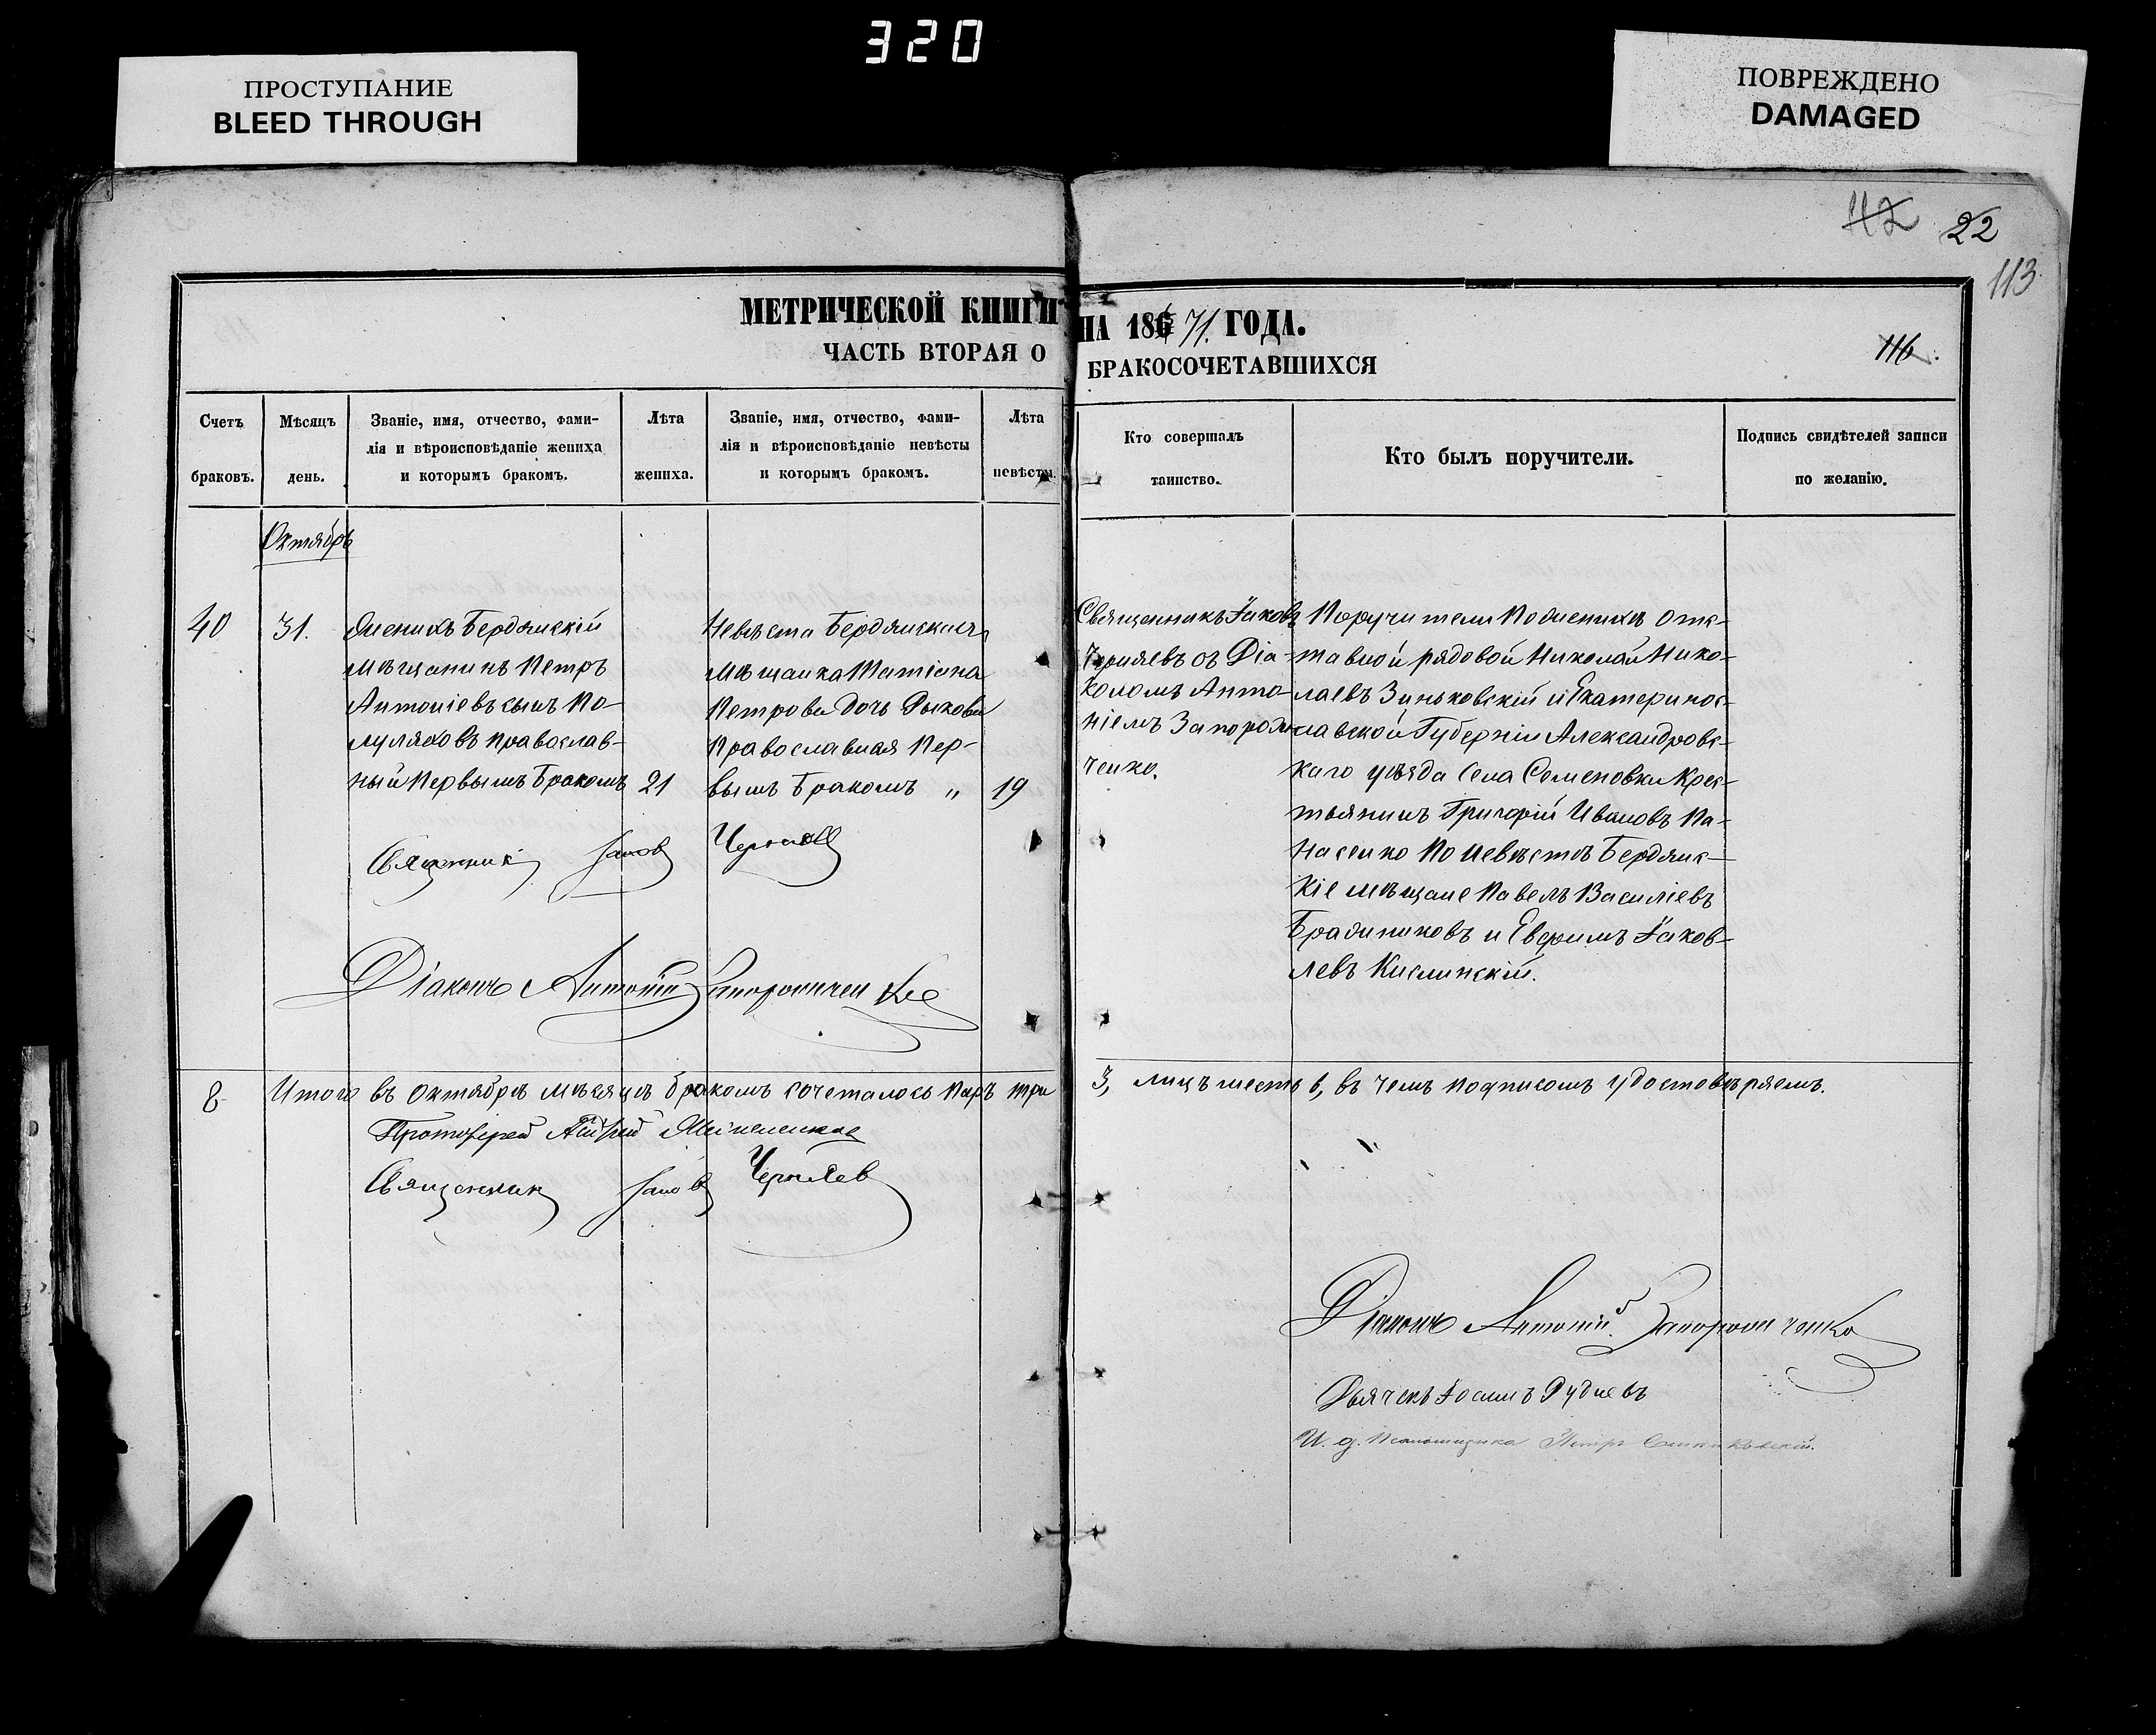 320
ПРОСТУПАНИЕ
BLEED THROUGH
ПОВРЕЖДЕНО
DAMAGED
112 22
113
116
МЕТРИЧЕСКОЙ КНИГИ НА 1871 ГОДА.
ЧАСТЬ ВТОРАЯ О БРАКОСОЧЕТАВШИХСЯ
Счетъ браковъ.
Мѣсяцъ день.
Званіе, имя, отчество, фами-
лія и вѣроисповѣданіе жениха
и которымъ бракомъ.
Лѣта жениха.
Званіе, имя, отчество, фами-
лія и вѣроисповѣданіе невѣсты
и которымъ бракомъ.
Лѣта невѣсты.
Кто совершалъ
таинство.
Кто былъ поручители.
Подпись свидѣтелей записи
по желанію.
Октябрь
40
31.
Женихъ Бердянскій
мѣщанинъ Петръ
Антоніевъ сынъ По-
луляховъ православ-
ный Первымъ Бракомъ
21
Невѣста Бердянская
мѣщанка Татіана
Петрова дочь Рыкова
Православная Пер-
вымъ Бракомъ „
19
Священникъ Іаковъ
Черняевъ съ Діа-
кономъ Анто-
ніемъ Запорож-
ченко.
Поручители По женихѣ отс-
тавной рядовой Николай Нико-
лаевъ Зуньковскій и Екатеринос-
лавской Губерніи Александровс-
каго уѣзда села Семеновки крес-
тьянинъ Григорій Ивановъ Па-
насенко По невѣстѣ Бердянс-
кіе мѣщане Павелъ Василіевъ
и Евфимъ Іаков-
левъ Кислинскій.
Священникъ Іаковъ Черняев
Діаконъ Антоній Запорожченко
8
Итого въ Октябрѣ мѣсяцѣ бракомъ сочеталось паръ три 3, лицъ шесть 6, въ чемъ подписомъ удостовѣряемъ.
Протоіерей
Священник Іаковъ Черняев
Діаконъ Антоній Запорожченко
Дьячекъ Іоаннъ Рудневъ
И. д. Псаломщика Петръ